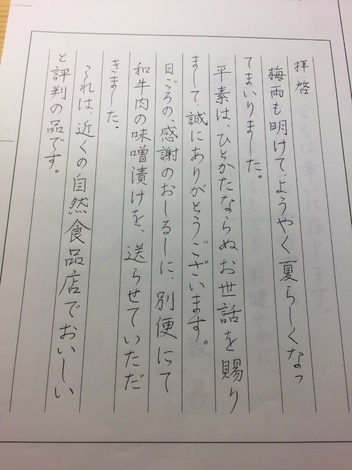 拝啓
梅雨も明けて、ようやく夏らしくなっ
てまいりました。
平素は、ひとかたならぬお世話を賜り
まして、誠にありがとうございます。
日ごろの、感謝のおしるしに、別便にて
和牛肉の味噌漬けを、送らせていただ
きました。
これは、近くの自然食品店でおいしい
と評判の品です。